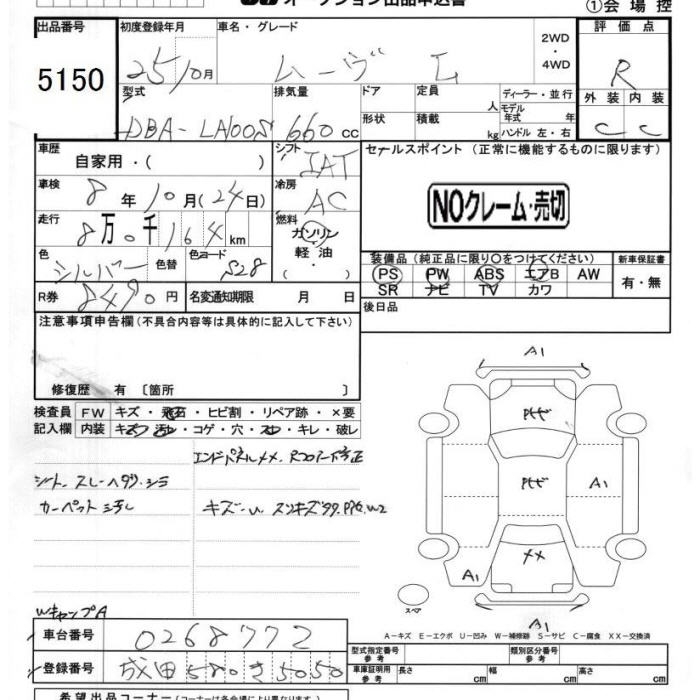 オークション出品申込書
①会場控
出品番号 初度登録年月 車名・グレード 2WD・4WD 評価点
5150 25/10月 ムーヴ L R
型式 排気量 ドア 定員 人 ディーラー・並行 外装 内装
DBA-LA100S 660cc 形状 積載 kg モデル年式 年 ハンドル 左・右 C C
車歴 自家用・( ) シフト IAT セールスポイント (正常に機能するものに限ります)
車検 8年10月(24日) 冷房 AC
NOクレーム・売切
走行 8万0千164km 燃料 ガソリン 軽油 ( ・ )
色 シルバー 色替 色コード S28
装備品 (純正品に限り〇をつけてください) 新車保証書
PS PW ABS エアB AW 有・無
SR ナビ TV カワ
R券 8490円 名変通知期限 月 日 後日品
注意事項申告欄 (不具合内容等は具体的に記入して下さい)
修復歴 有 〔箇所 〕
検査員 FW キズ・飛石・ヒビ割・リペア跡・×要
記入欄 内装 キズ・汚レ・コゲ・穴・スレ・キレ・破レ
エンドパネルXX.
シート.スレ
カーペット
キズ・U
A1
A1
A1
XX
A1
スペア
A－キズ E－エクボ U－凹み W－補修跡 S－サビ C－腐食 XX－交換済
車台番号 0268772
型式指定番号 参考 類別区分番号 参考
登録番号 成田580さ5050
車庫証明用 参考 長さ cm 幅 cm 高さ cm
希望出品コーナー (コーナーは各会場により異なります)